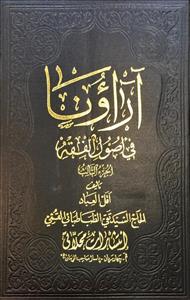 آراؤنا
في أصول الفقه
الجزء الثالث
تأليف
أقل العباد
الحاج السيد تقي الطباطبائي القمي
انتشارات محلاتي